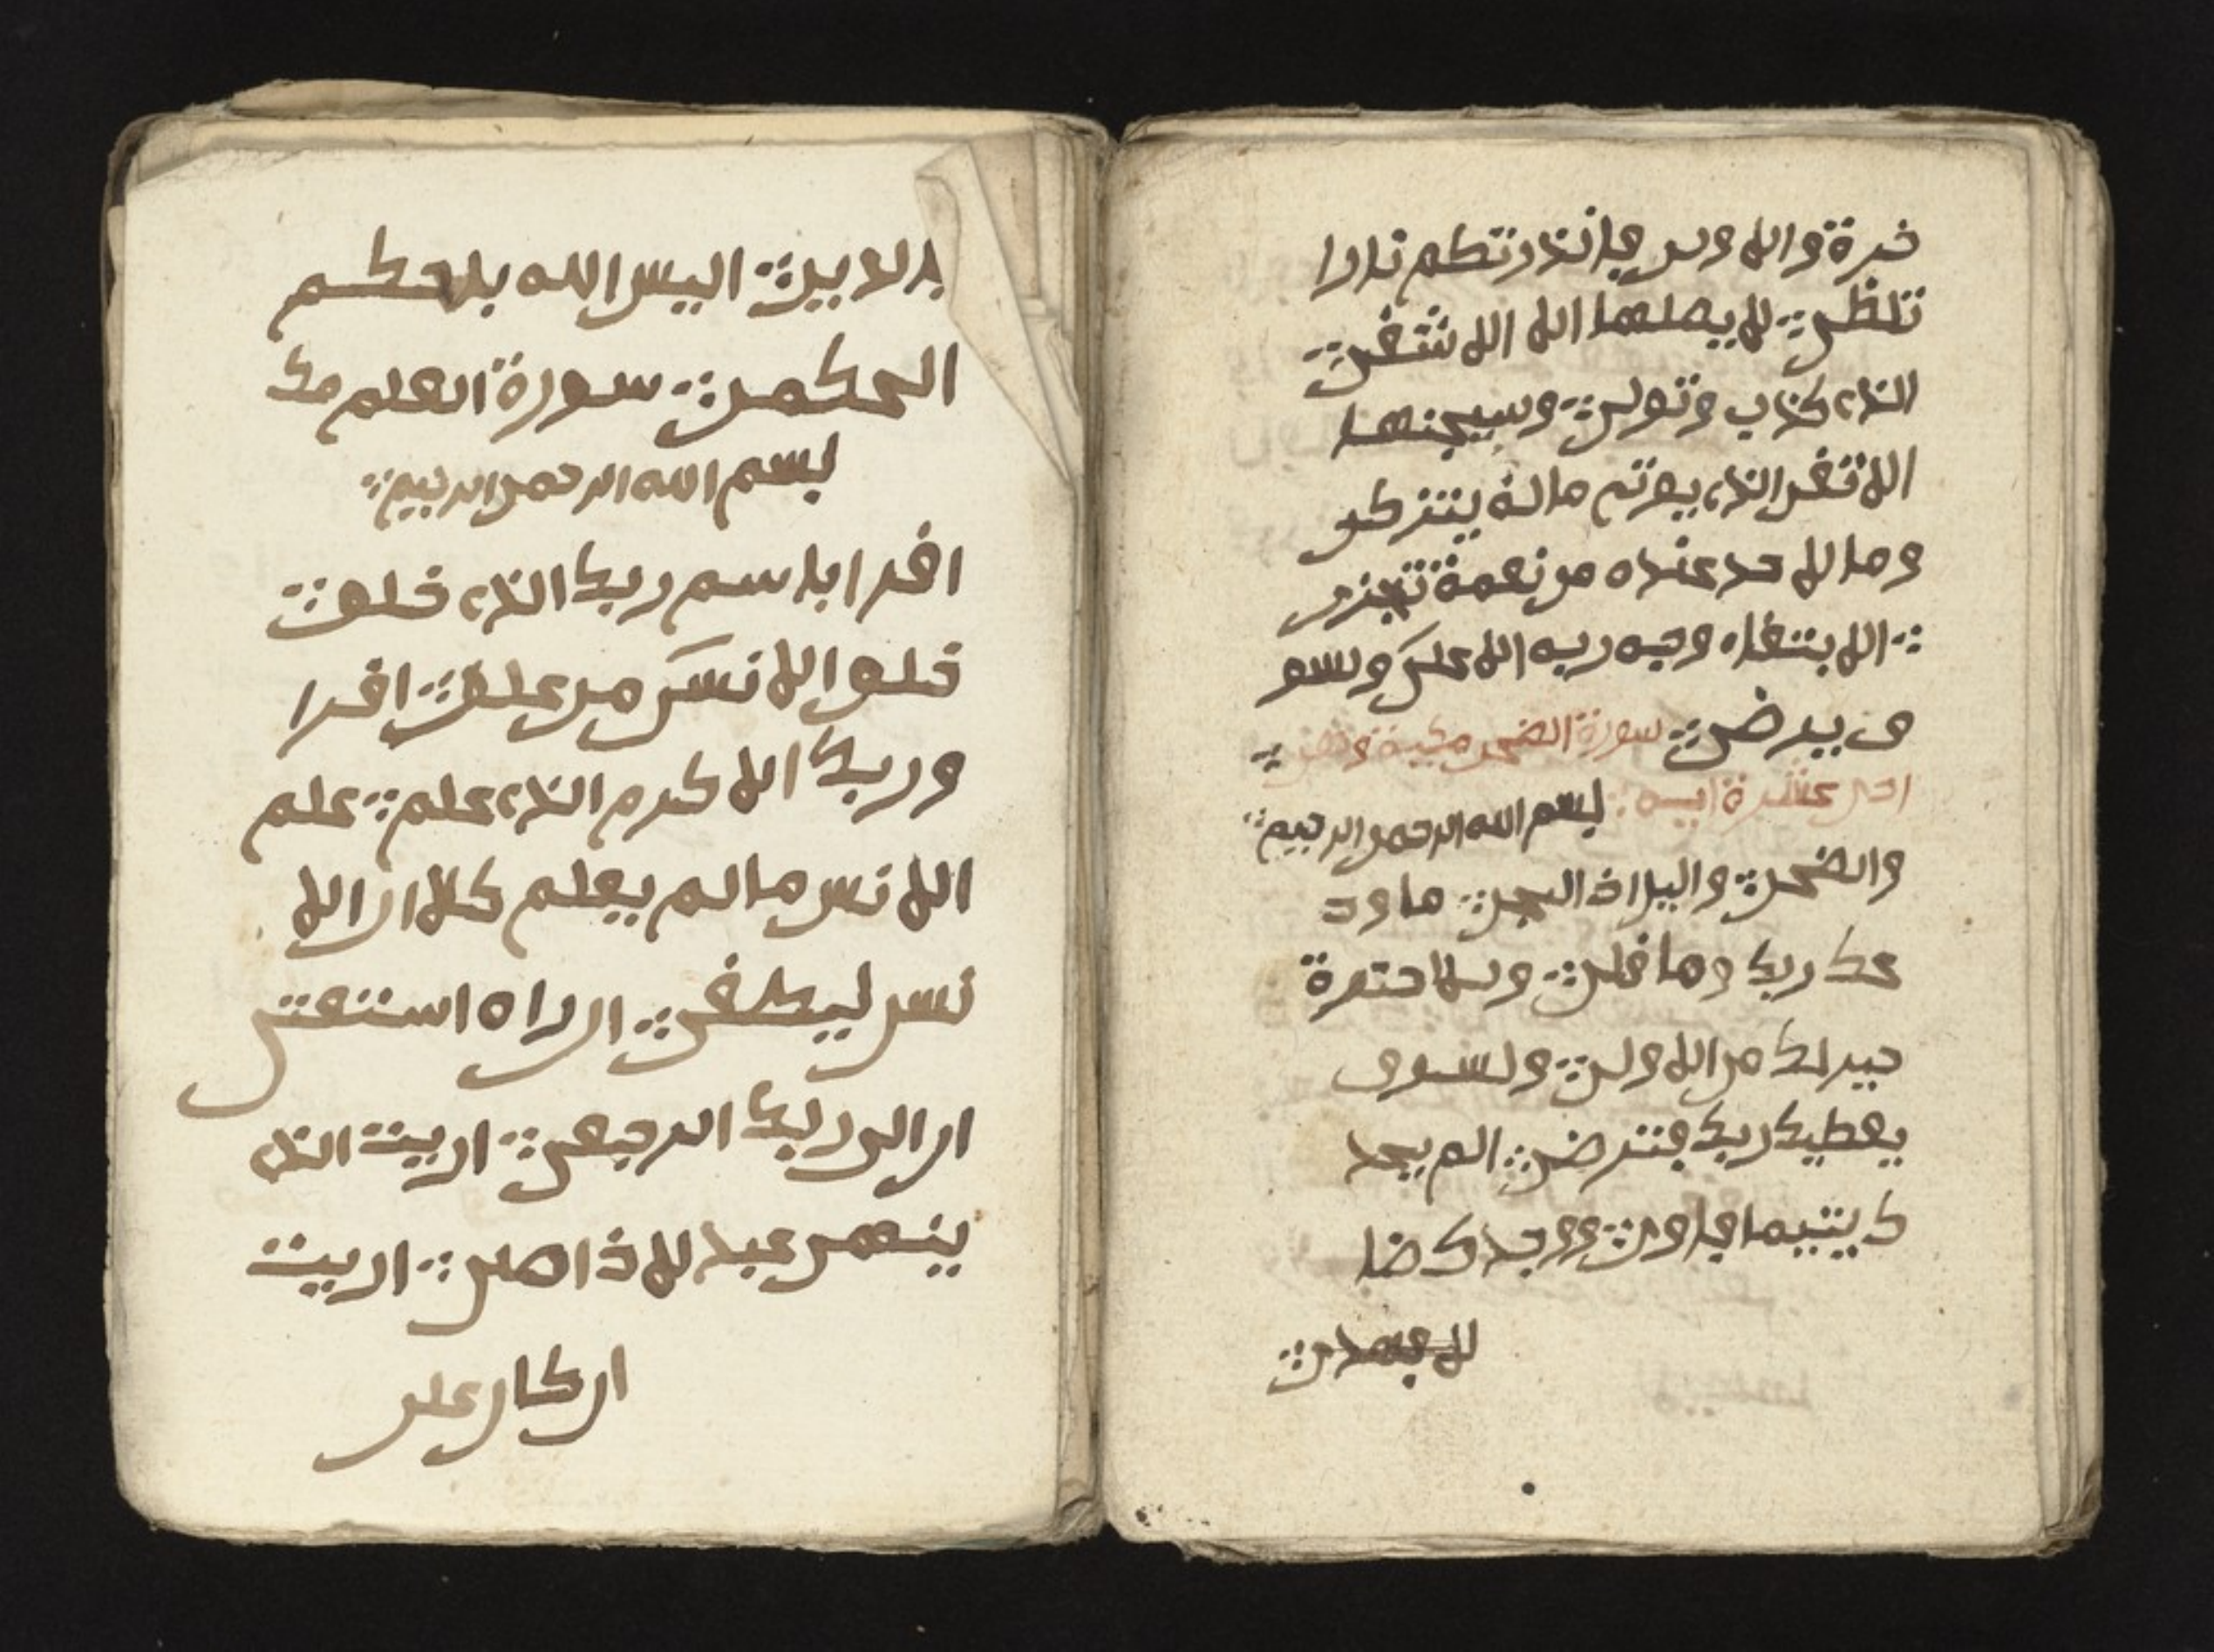 خرة والاولى فانذرتكم نارا
تلظى لا يصلها الا الا شقى
الذي كذب وتولى وسيجنبها
الاتقى الذي يوتي ماله يتزكى
وما لاحد عنده من نعمة تجزى
الا بتغاء وجه ربه الاعلى ولسو
ف يرضى سورة الضحى مكية وهى
احد عشرة اية بسم الله الرحمن الرحيم
والضحى واليل اذا سجى ما ود
عك ربك وما قلى وللاخرة
خير لك من الاولى ولسوف
يعطيك ربك فترضى الم يجد
ك يتيما فاوى ووجدك ضا
لا فهدى
بالدين اليس الله باحكم
الحكمين سورة العلم مك
بسم الله الرحمن الرحيم
اقرا باسم ربك الذي خلق
خلق الانسن من علق اقرا
وربك الاكرم الذي علم علم
الانسن ما لم يعلم كلا ان الا
نسن ليطغى ان راه استغنى
ان الى ربك الرجعى اريت الذي
ينهى عبدا اذا صلى اريت
ان كان على